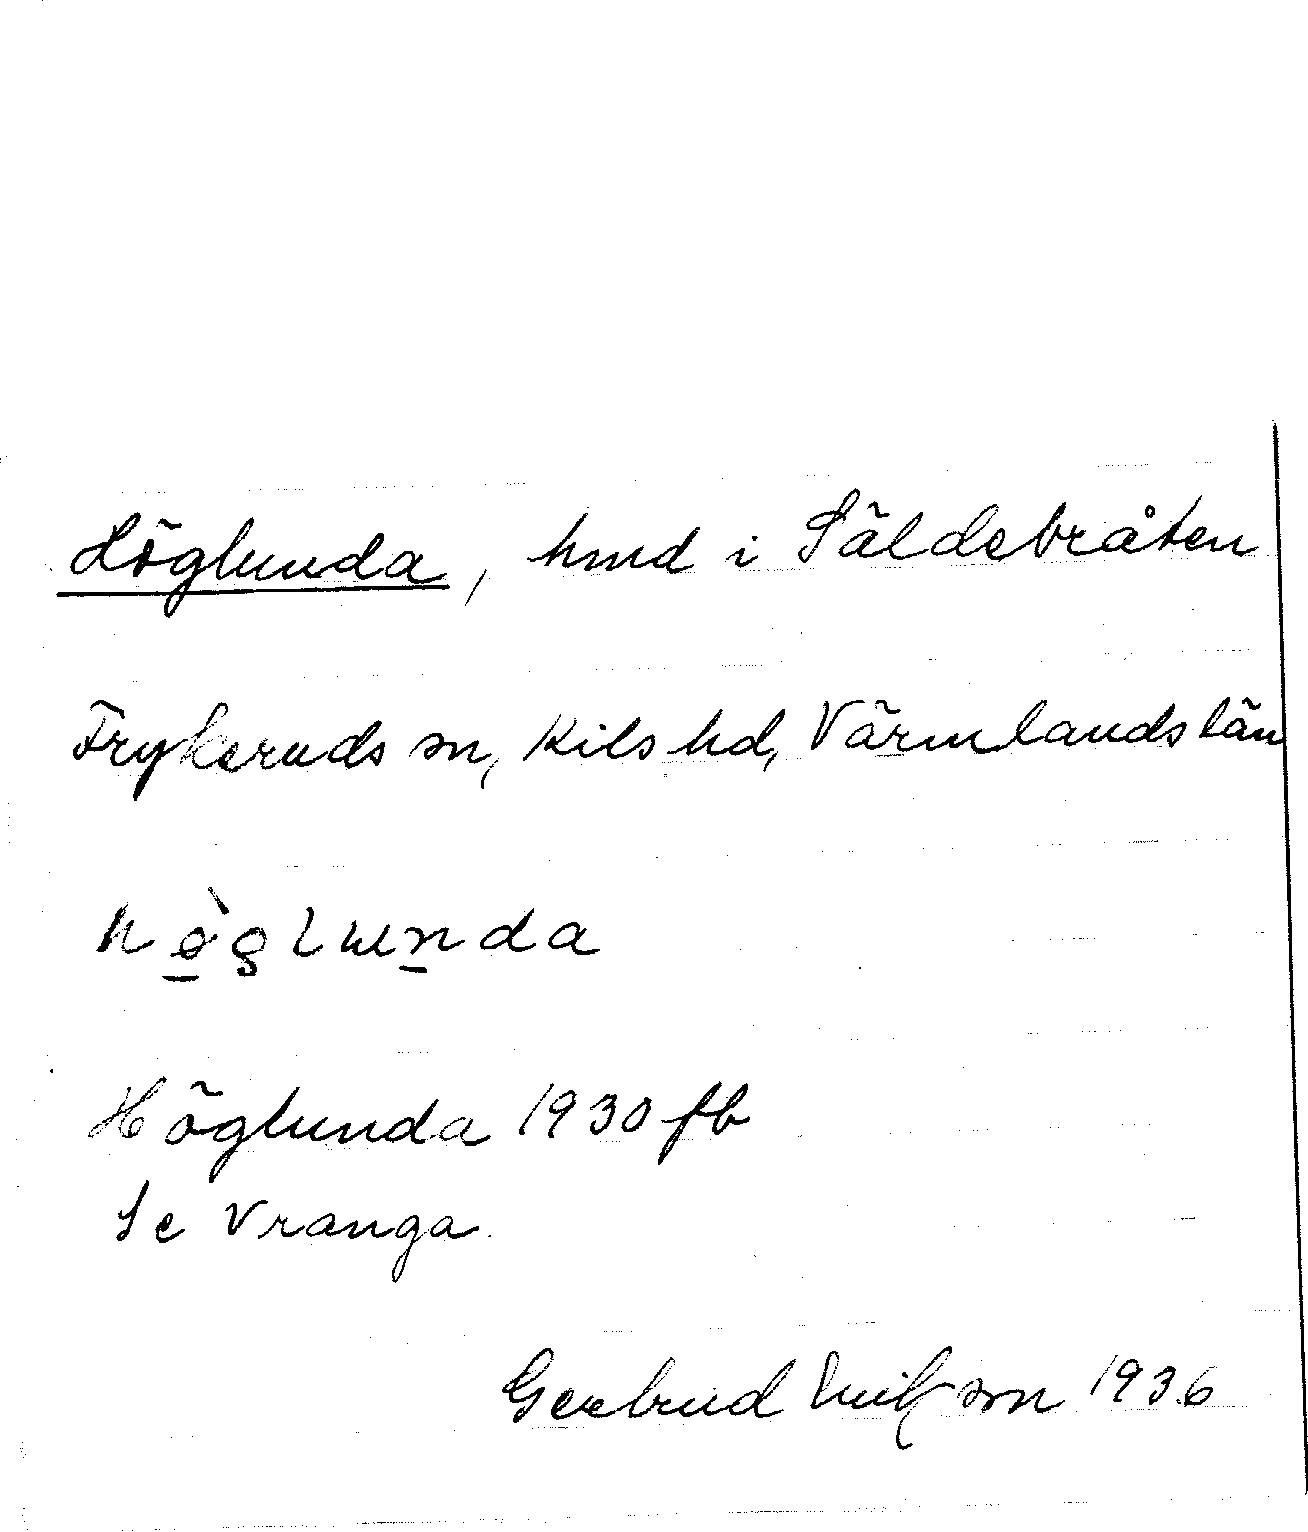 Höglunda, hmd i Säldebråten
Frykeruds sn, Kils hd, Värmlands län
Höglunda 1930 fb
Se Vranga.
Gertrud 1936